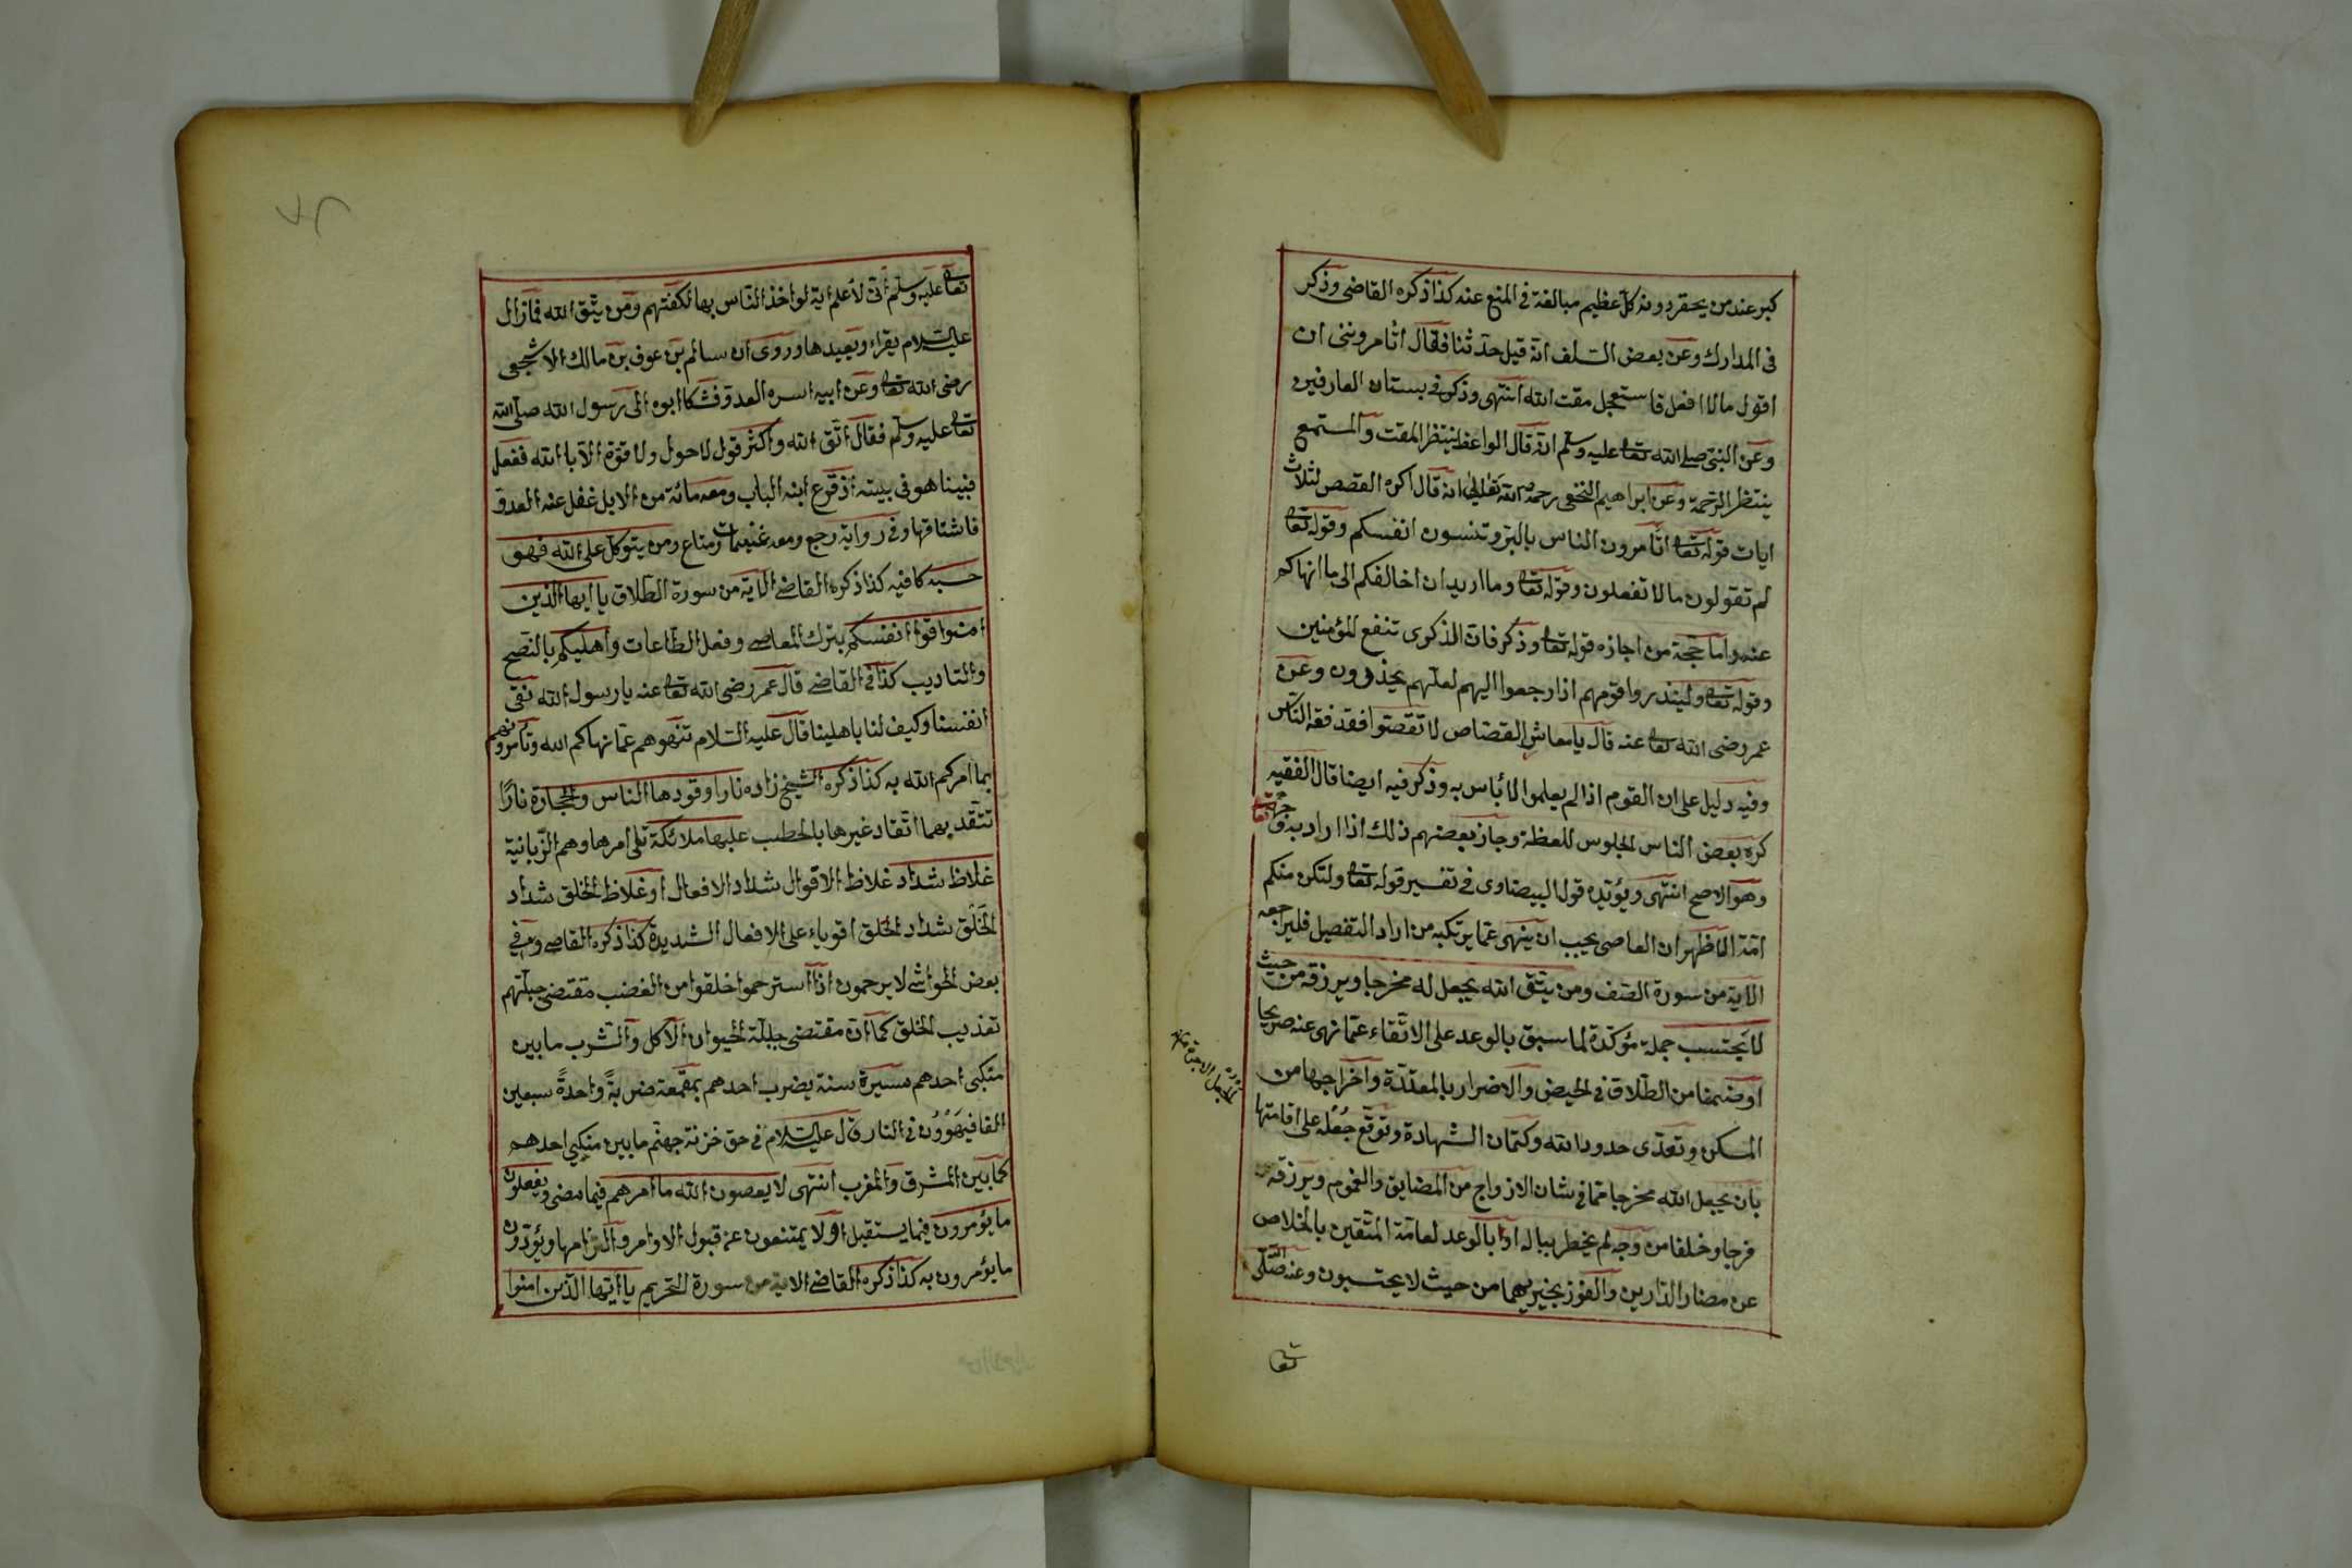 كبر عند من يحقر دونه كل عظيم مبالغة فى المنع عنه كذا ذكره القاضى وذكر
فى المدارك وعن بعض السلف انه قيل حدثنا فقال أتأمروننى ان
اقول ما لا افعل فاستعجل مقت الله انتهى وذكر فى بستان العارفين
وعن النبى صلى الله تعا عليه وسلم انه قال الواعظ ينتظر المقت والمستمع
ينتظر الرحمة وعن ابراهيم النخعى رحمه الله تعالى انه قال اكره القصص لثلاث
ايات قوله تعا اتأمرون الناس بالبر وتنسون انفسكم وقوله تعا
لم تقولون ما لا تفعلون وقوله تعا وما اريد ان اخالفكم الى ما انهاكم
عنه واما حجة من اجازه قوله تعا وذكر فان الذكرى تنفع المؤمنين
وقوله تعا ولينذروا قومهم اذا رجعوا اليهم لعلهم يحذرون وعن
عمر رضى الله تعا عنه قال يا معاشر القصاص لا تقصوا فقد فقه الناس
وفيه دليل على ان القوم اذا لم يعلموا لا بأس به وذكر فيه ايضا قال الفقيه
كره بعض الناس الجلوس للعظة وجاز بعضهم ذلك اذا اراد به وجه الله تعا
وهو الاصح انتهى ويؤيده قول البيضاوى فى تفسير قوله تعا ولتكن منكم
امة الاظهر ان العاصى يجب ان ينهى عما يرتكبه من اراد التفصيل فليراجعه
الاية من سورة الصف ومن يتق الله يجعل له مخرجا ويرزقه من حيث
لا يحتسب جملة مؤكدة لما سبق بالوعد على الاتقاء عما نهى عنه صريحا
او ضمنا من الطلاق فى الحيض والاضرار بالمعتدة واخراجها من
المسكن وتعدى حدود الله وكتمان الشهادة وتوقع جعل على اقامتها
بان يجعل الله مخرجا مما فى شان الازواج من المضايق والغموم ويرزقه
فرجا وخلفا من وجه لم يخطر بباله او بالوعد لعامة المتقين بالخلاص
عن مضار الدارين والفوز بخيريهما من حيث لا يحتسبون وعنه صلى
تعا
تعا عليه وسلم انى لأعلم اية لو اخذ الناس بها لكفتهم ومن يتق الله فما زال
عليه السلام يقراء ويعيدها وروى ان سالم بن عوف بن مالك الاشجعى
رضى الله تعا وعن ابيه اسره العدو فشكا ابوه الى رسول الله صلى الله
تعا عليه وسلم فقال اتق الله واكثر قول لا حول ولا قوة الا بالله ففعل
فبينا هو فى بيته اذ قرع ابنه الباب ومعه مائة من الابل غفل عنه العدو
فاستاقها وفى رواية رجع ومعه غنيمات ومتاع ومن يتوكل على الله فهو
حسبه كافيه كذا ذكره القاضى الاية من سورة الطلاق يا ايها الذين
امنوا قوا انفسكم بترك المعاصى وفعل الطاعات واهليكم بالنصح
والتاديب كذا فى القاضى قال عمر رضى الله تعا عنه يا رسول الله نقى
انفسنا وكيف لنا باهلينا قال عليه السلام تنهوهم عما نهاكم الله وتأمرونهم
بما امركم الله به كذا ذكره الشيخ زاده نارا وقودها الناس والحجارة نارًا
تتقد بهما اتقاد غيرها بالحطب عليها ملائكة تلى امرها وهم الزبانية
غلاظ شداد غلاظ الاقوال شداد الافعال او غلاظ الخلق شداد
الخلق شداد الخلق اقوياء على الافعال الشديدة كذا ذكره القاضى وفى
بعض الحواشى لا يرحمون اذا استرحموا خلقوا من الغضب مقتضى جبلتهم
تعذيب الخلق كما ان مقتضى جبلة الحيوان الاكل والشرب ما بين
منكبى احدهم مسيرة سنة يضرب احدهم بمقمعة ضربةً واحدةً سبعين
الفا فيهوون فى النار قال عليه السلام فى حق خزنة جهنم ما بين منكبى احدهم
كما بين المشرق والمغرب انتهى لا يعصون الله ما امرهم فيما مضى ويفعلون
ما يؤمرون فيما يستقبل او لا يمتنعون عن قبول الاوامر والتزامها ويؤدون
ما يؤمرون به كذا ذكره القاضى الاية من سورة التحريم يا ايها الذين امنوا